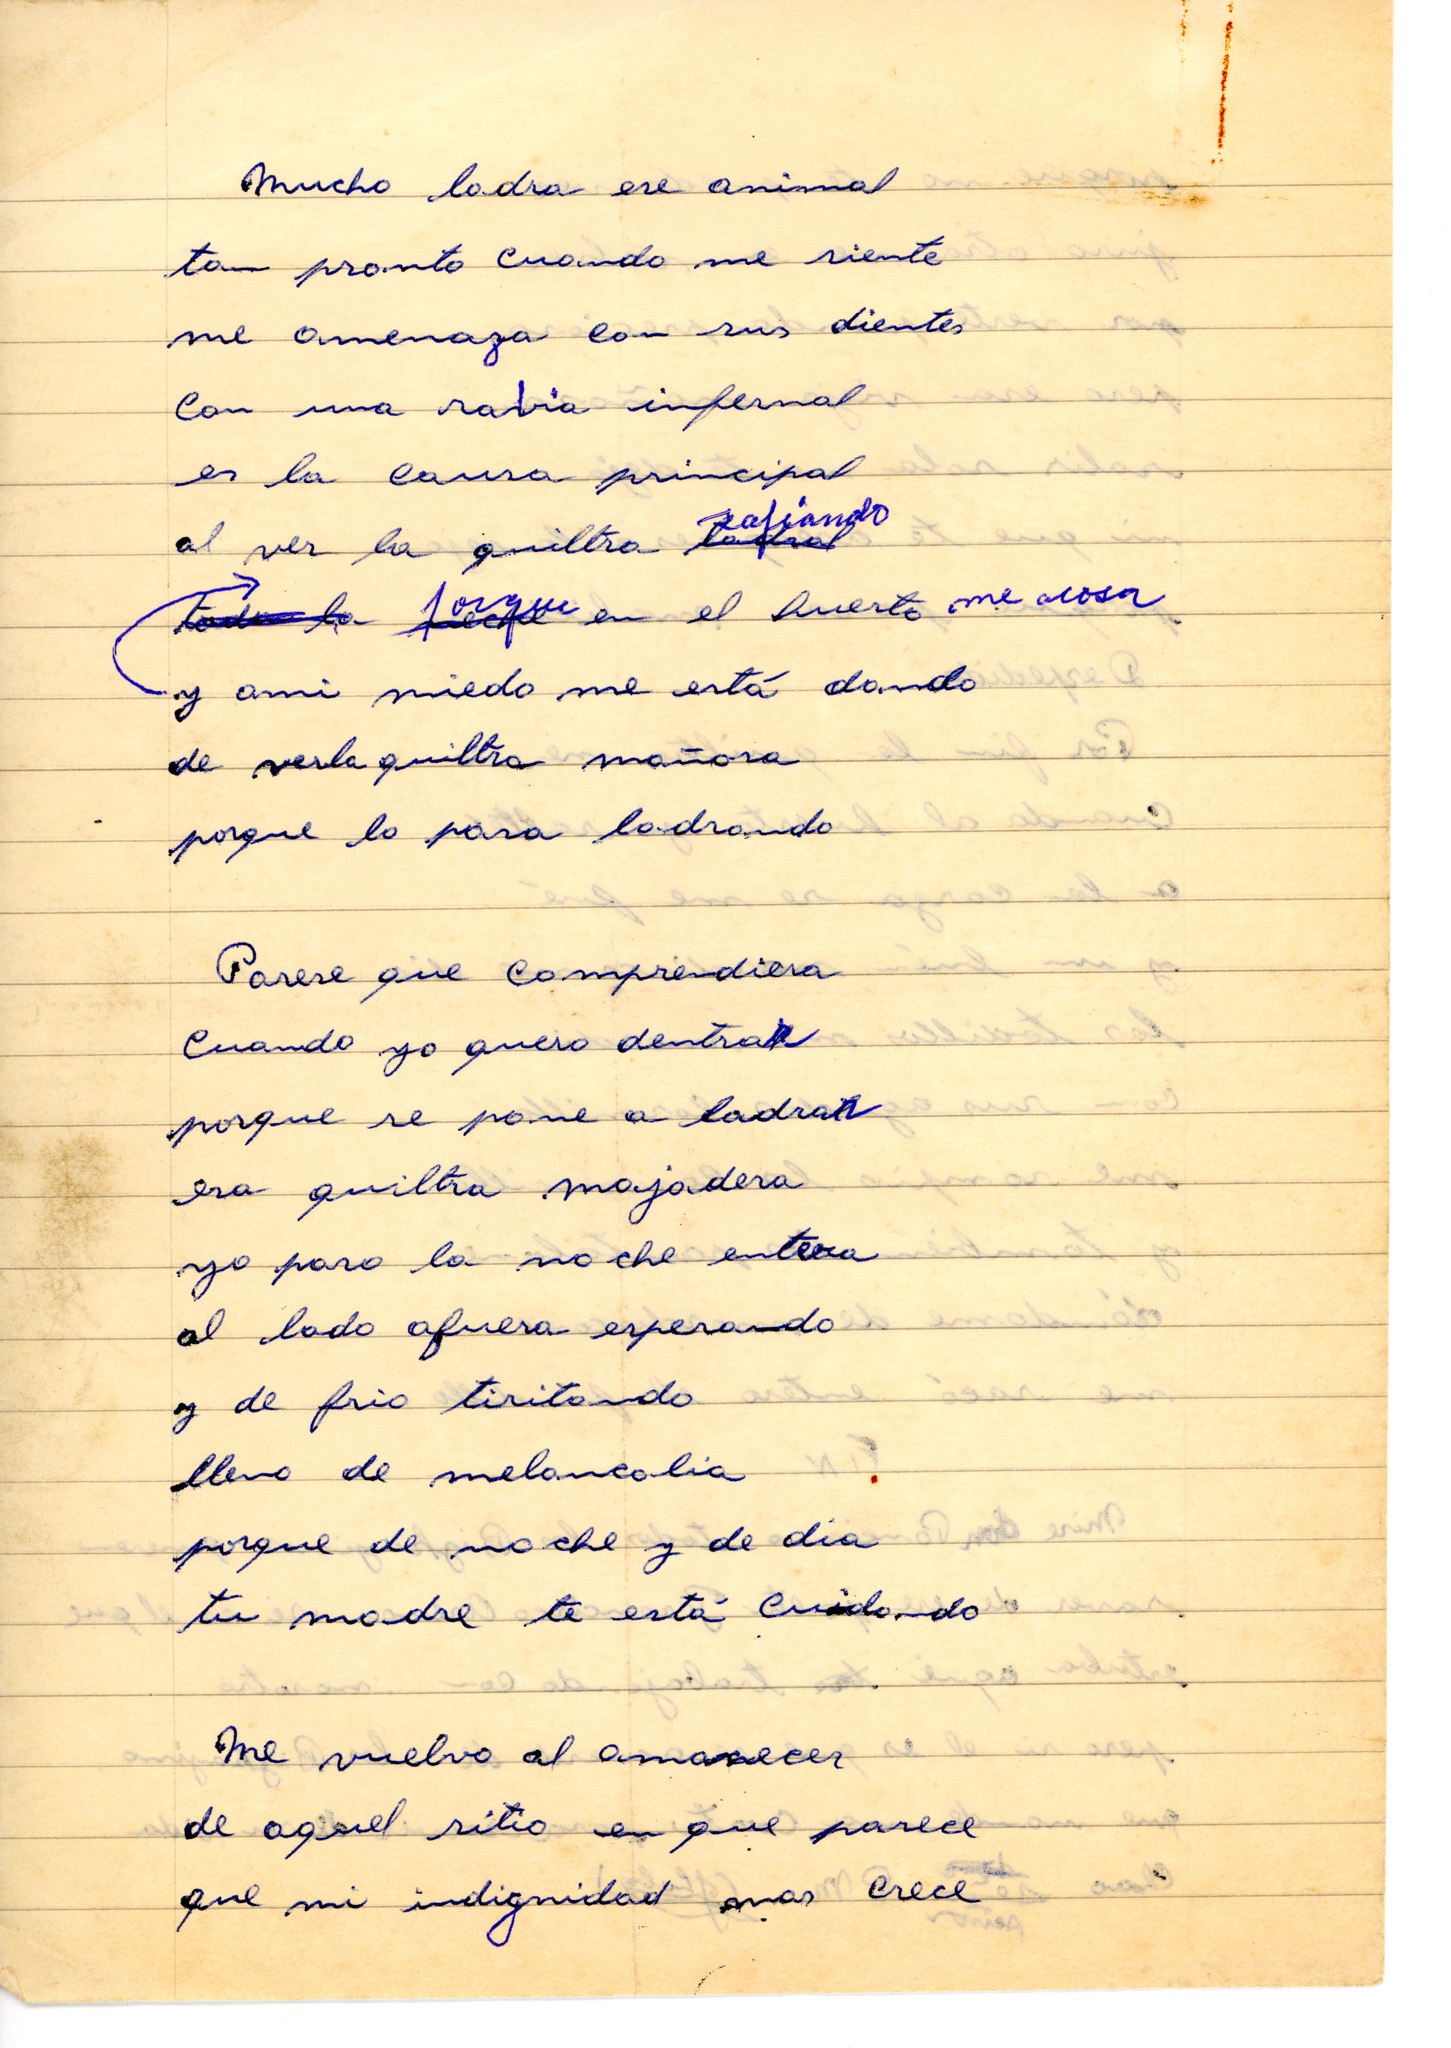 Mucho ladra ese animal
tan pronto cuando me siente
me amenaza con sus dientes
con una rabia infernal
es la causa principal
al ver la quiltra ladral zafiando
toda la porque en el huerto me acosa
y ami miedo me está dando
de verla quiltra mañosa
porque lo pasa ladrando
Parese que comprendiera
Cuando yo quero dentrar
porque se pone a ladrar
esa quiltra majadera
yo paso la noche entera
al lado afuera esperando
y de frio tiritando
lleno de melancolia
porque de noche y de dia
tu madre te está cuidando
Me vuelvo al amanecer
de aquel sitio en que parece
que mi indignidad mas crece